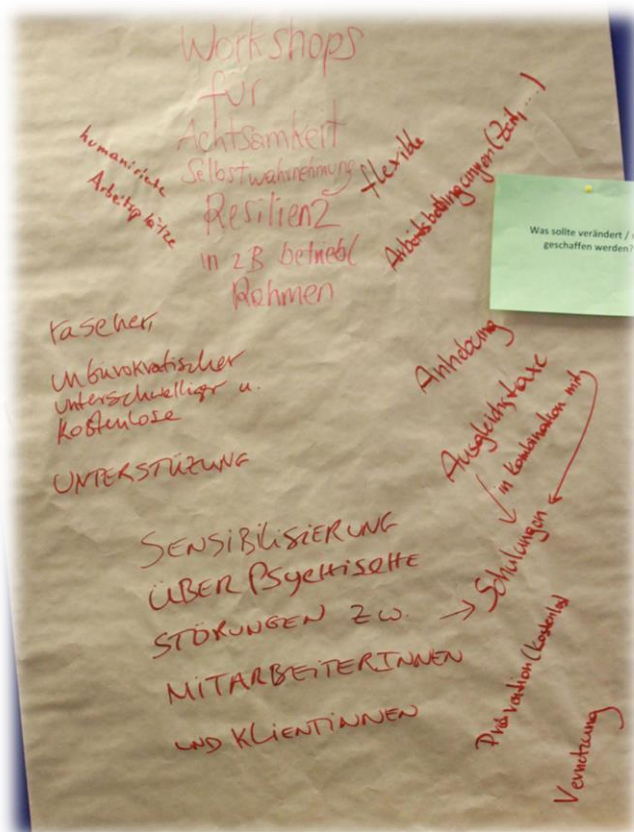 Workshops
für
Achtsamkeit
Selbstwahrnehmung
Resilienz
in zB betriebl
Rahmen
humanistische
Arbeitsplätze
flexible
Arbeitsbedingungen (Zeit, ...)
Was sollte verändert /
geschaffen werden?
rascher,
unbürokratischer
unterschwelliger u.
kostenlose
UNTERSTÜZUNG
Anhebung
Ausgleichstaxe
in Kombination mit
Schulungen
SENSIBILISIERUNG
ÜBER PSYCHISCHE
STÖRUNGEN ZW.
MITARBEITERINNEN
UND KLIENTINNEN
Prävention (kostenlos)
Vernetzung